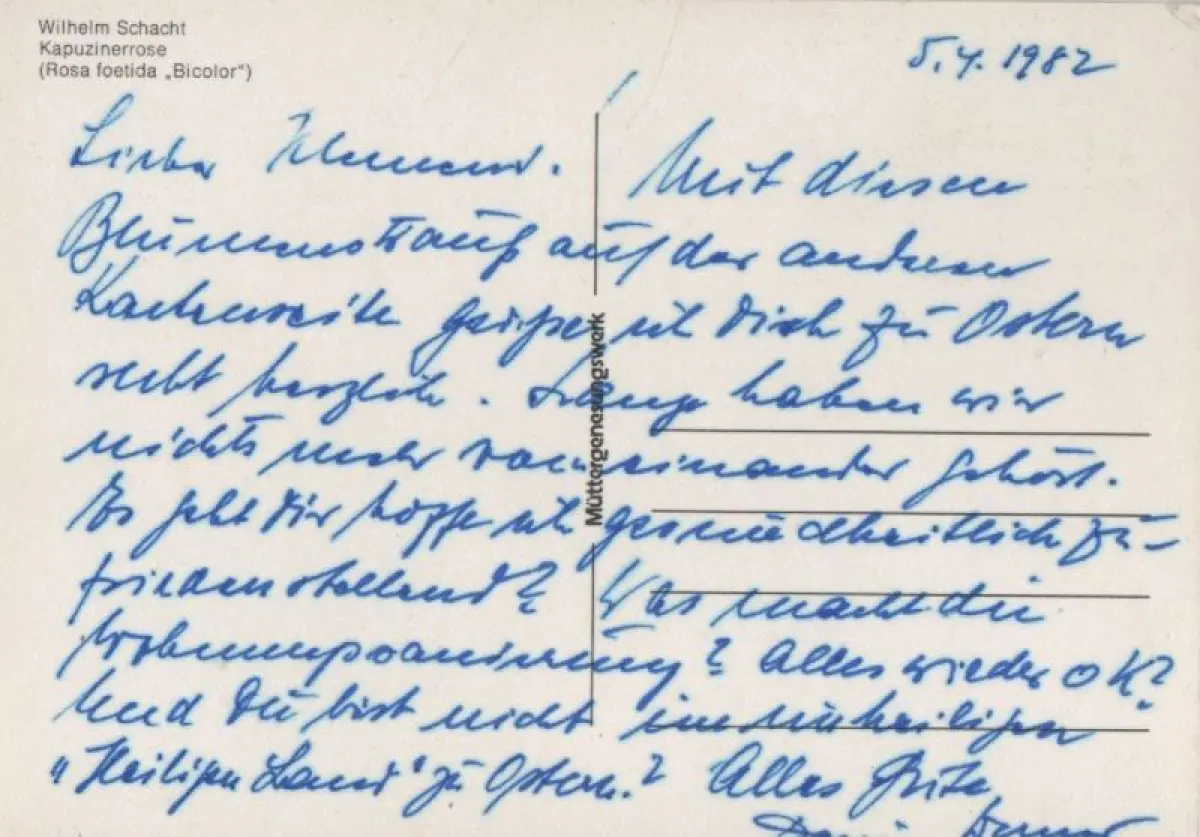 Wilhelm Schacht
Kapuzinerrose
(Rosa foetida „Bicolor“)
5.4.1982
Lieber Klemens. Mit diesem
Blumenstrauß auf der anderen
Kartenseite grüße ich Dich zu Ostern
recht herzlich. Lange haben wir
nichts mehr voneinander gehört.
Es geht Dir hoffentlich gesundheitlich zu-
friedenstellend? Was macht die
Wohnungssanierung? Alles wieder ok?
Und Du bist nicht im unheiligen
"Heiligen Land" zu Ostern? Alles Gute
Müttergenesungswerk